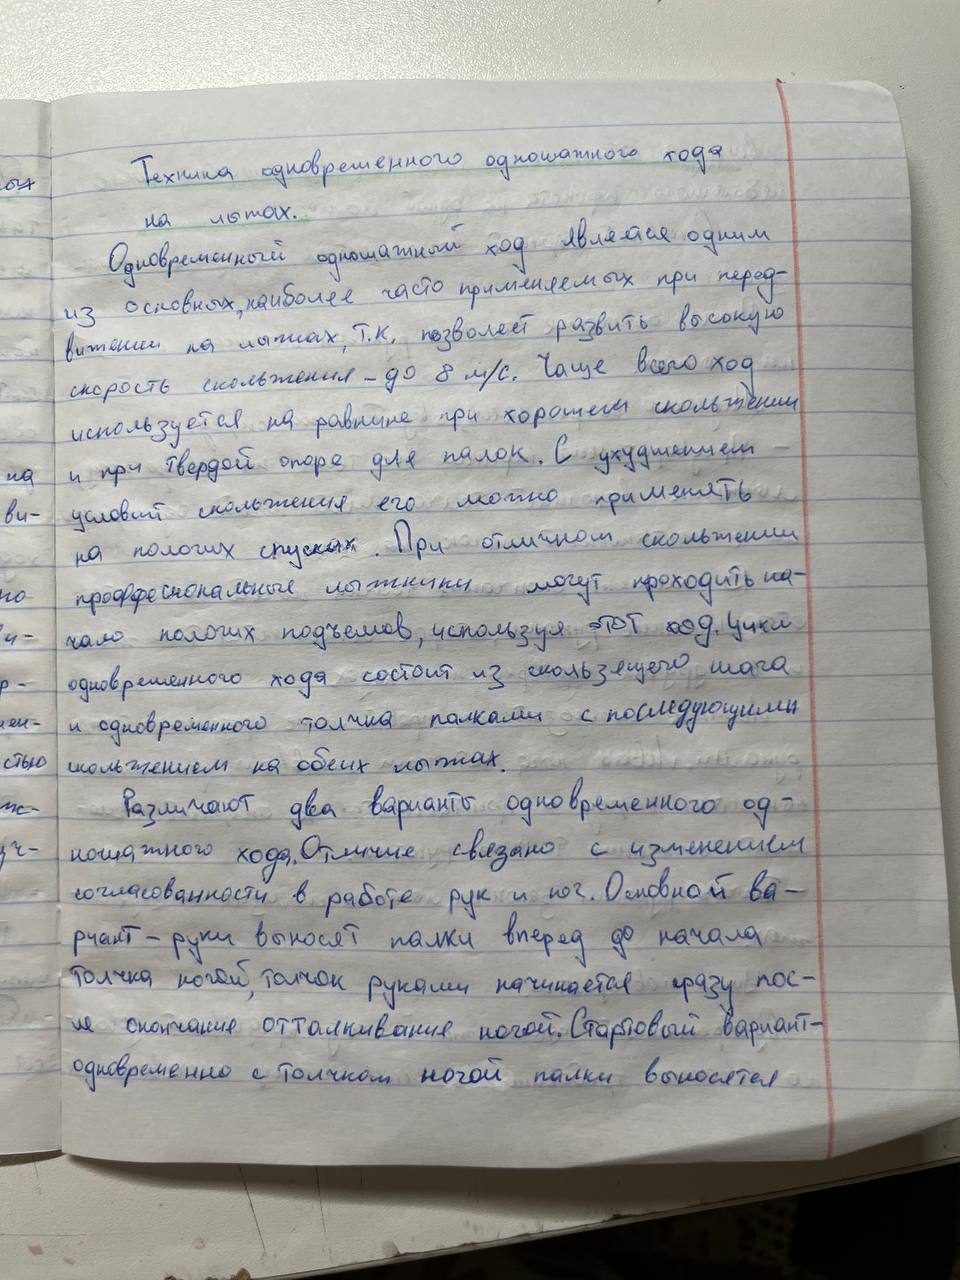 Техника одновременного одношажного хода
на лыжах.
Одновременный одношажный ход является одним
ых
из основных, наиболее часто применяемых при перед-
вижении на лыжах, т.к. позволяет развить высокую
скорость скольжения - до 8 м/с. Чаще всего ход
используется на равнине при хорошем скольжении
на и при твердой опоре для палок. С ухудшением
ви- условий скольжения его можно применять
на пологих спусках. При отличном скольжении
но профессиональные лыжники могут проходить на-
чало пологих подъемов, используя этот ход. Цикл
р- одновременного хода состоит из скользящего шага
и одновременного толчка палками с последующими
стью скольжением на обеих лыжах.
Различают два варианты одновременного од-
ношажного хода. Отличие связано с изменением
согласованности в работе рук и ног. Основной ва-
риант - руки выносят палки вперед до начала
толчка ногой, толчок руками начинается сразу пос-
ле окончания отталкивания ногой. Стартовый вариант-
одновременно с толчком ногой палки выносятся